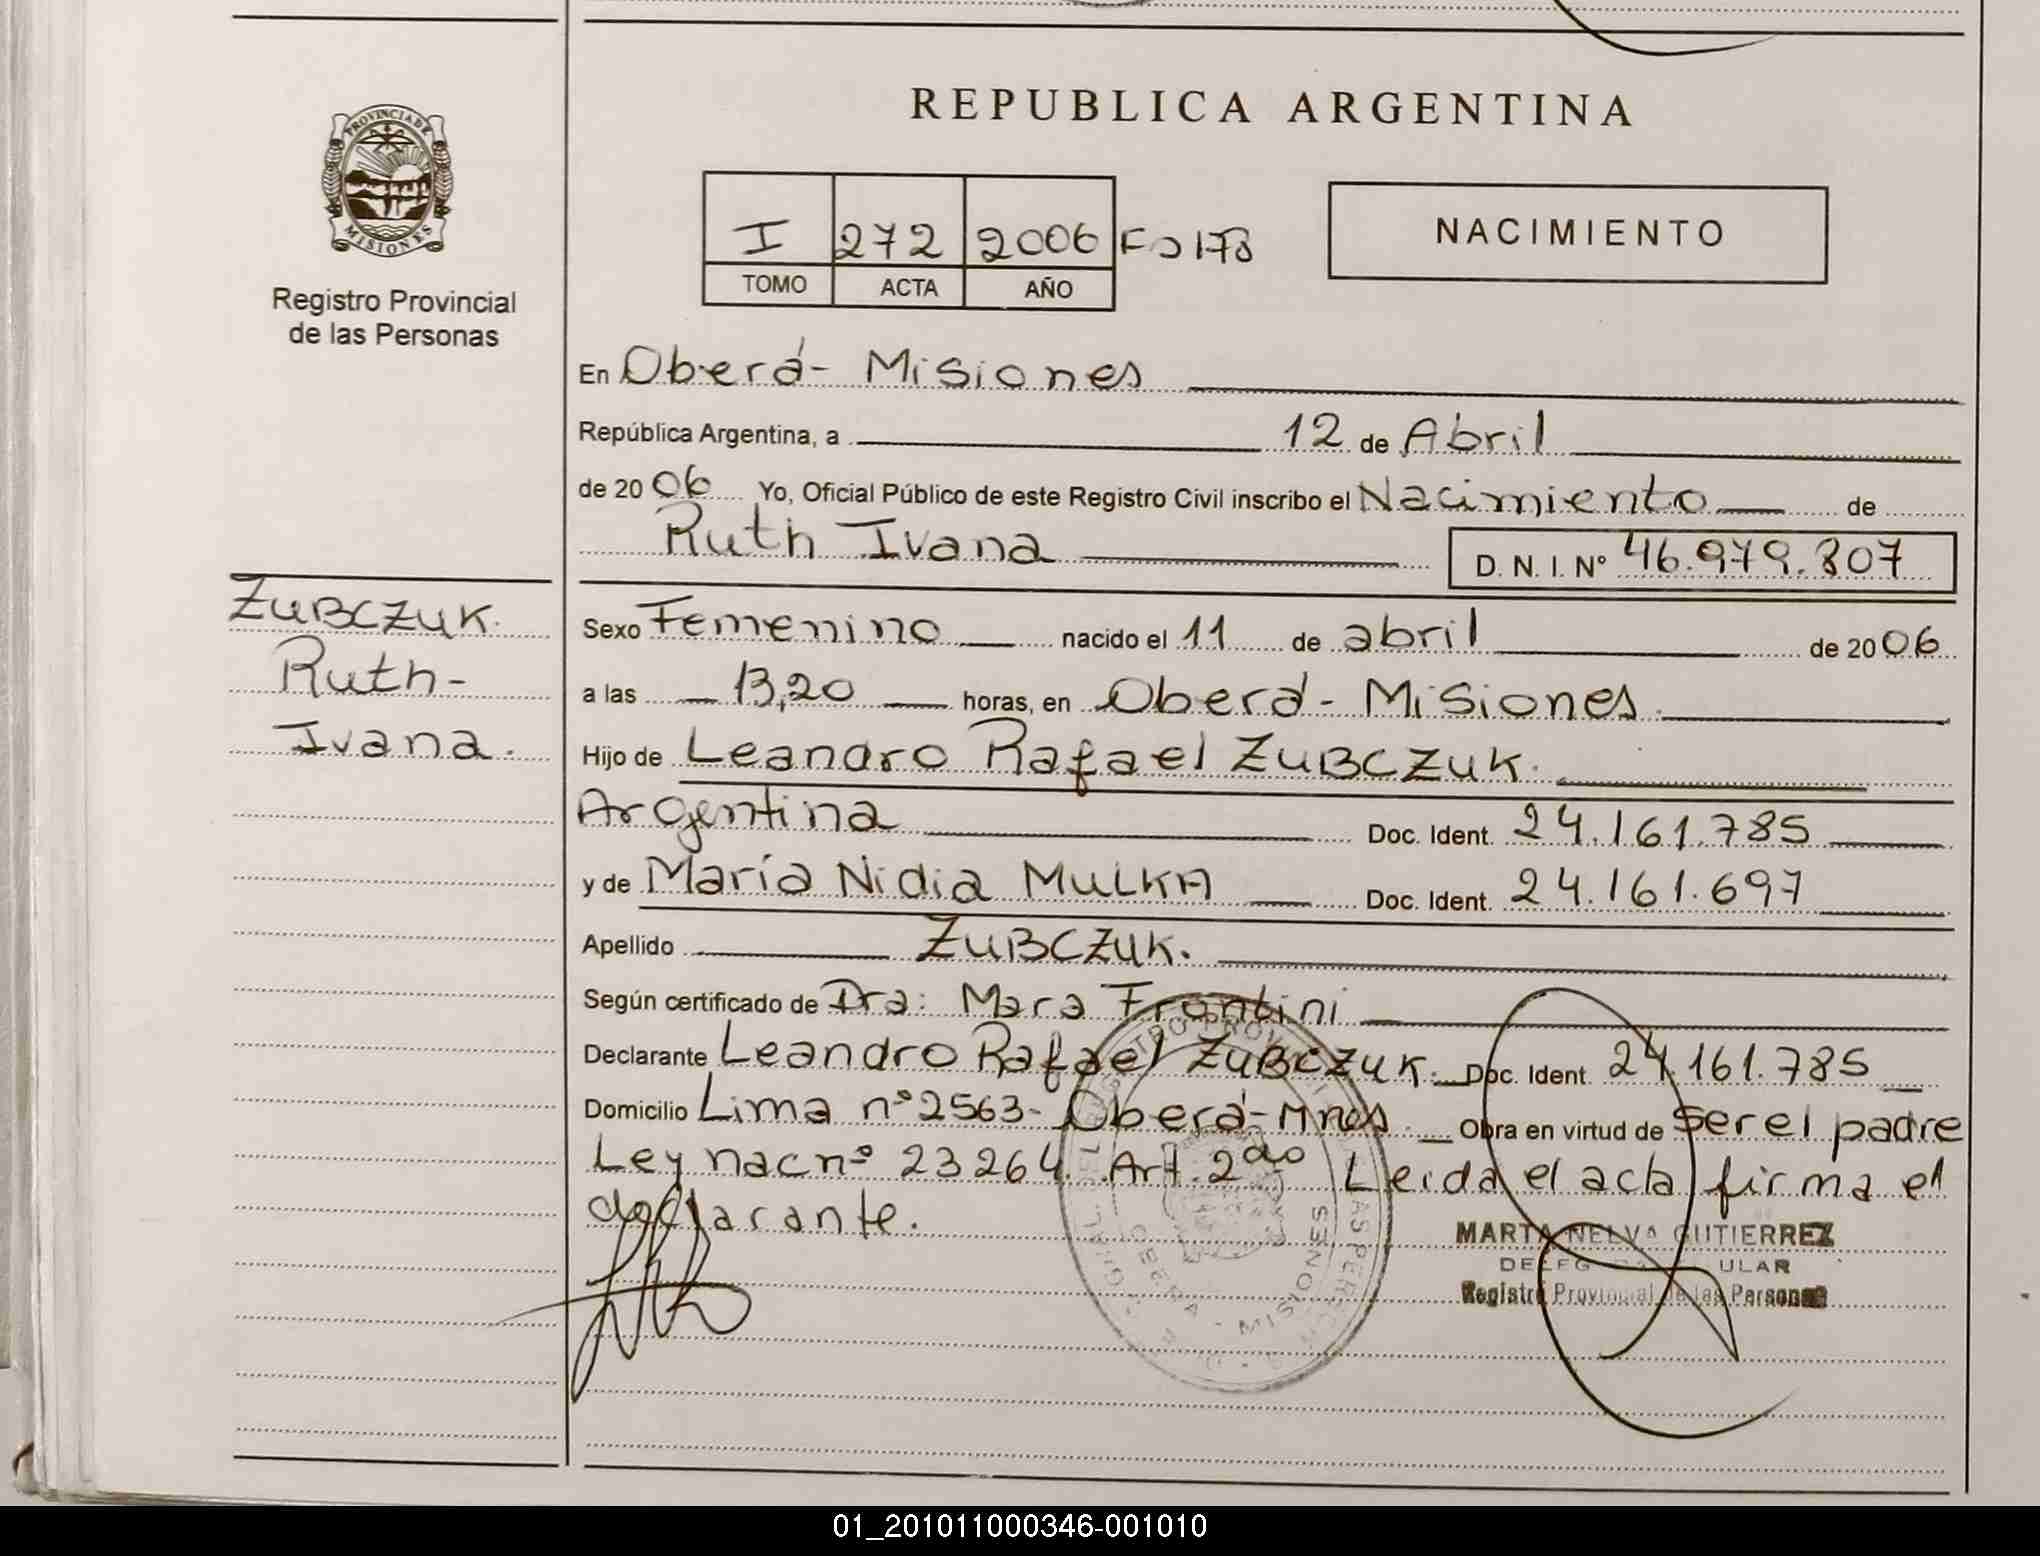 REPUBLICA ARGENTINA
PROVINCIA DE
MISIONES
Registro Provincial
de las Personas
I 272 2006 Fº 178
TOMO ACTA AÑO
NACIMIENTO
En Oberá - Misiones
República Argentina, a 12 de Abril
de 2006 Yo, Oficial Público de este Registro Civil inscribo el Nacimiento de
Ruth Ivana D. N. I. Nº 46.979.807
ZUBCZUK.
Ruth -
Ivana.
Sexo Femenino nacido el 11 de abril de 2006
a las 13,20 horas, en Oberá - Misiones.
Hijo de Leandro Rafael ZUBCZUK.
Argentina Doc. Ident. 24.161.785
y de María Nidia MULKA Doc. Ident. 24.161.697
Apellido ZUBCZUK.
Según certificado de Dra: Mara Frontini
Declarante Leandro Rafael ZUBCZUK. Doc. Ident. 24.161.785
Domicilio Lima nº 2563- Oberá-Mnes. Obra en virtud de ser el padre
Ley nac nº 23264. Art. 2do Leida el acta firma el
declarante.
MARTA NELVA GUTIERREZ
Registro Provincial de las Personas
OBERA - MISIONES
01_201011000346-001010